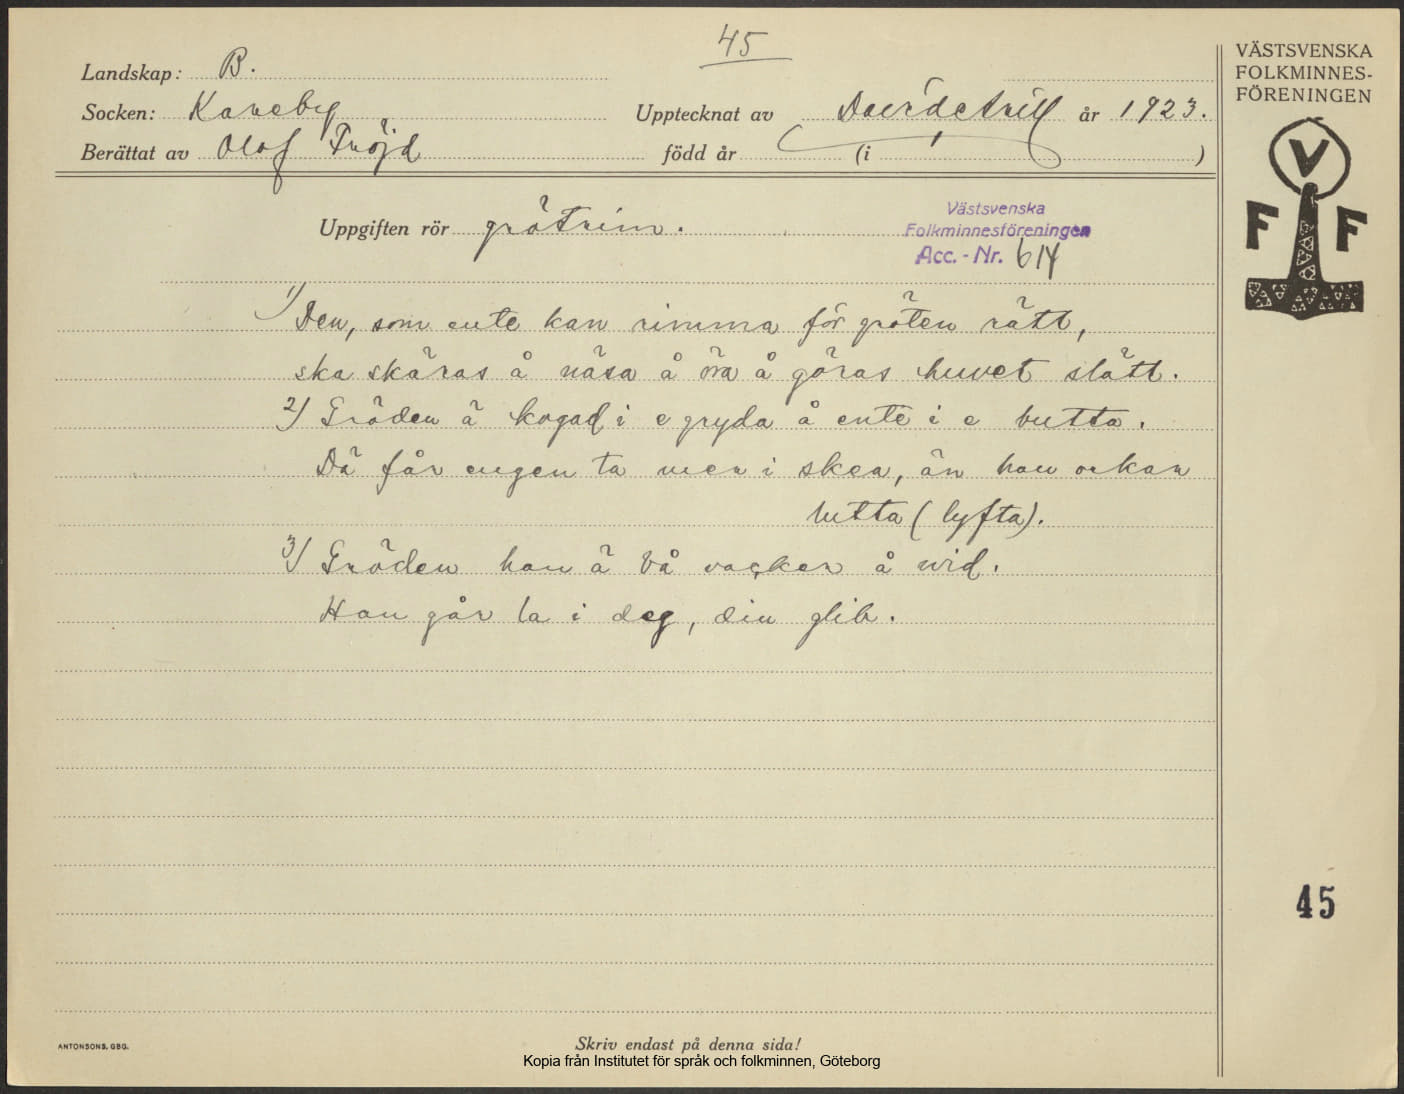 45
VÄSTSVENSKA
FOLKMINNES-
FÖRENINGEN
Landskap: B.
Socken: Kareby Upptecknat av David Arill år 1923.
Berättat av Olof Fröjd född år (i )
V
F F
Uppgiften rör grötrim.
Västsvenska
Folkminnesföreningen
Acc. - Nr. 614
1) Den, som ente kan rimma för gröten rätt,
ska skäras å näsa å öra å göras huvet slätt.
2) Gröden ä kogad i e gryda å ente i e butta.
Dä får engen ta mer i skea, än han orkar
lutta (lyfta).
3) Gröden han ä bå vacker å vid.
Han går la i deg, din glib.
45
ANTONSONS. GBG.
Skriv endast på denna sida!
Kopia från Institutet för språk och folkminnen, Göteborg